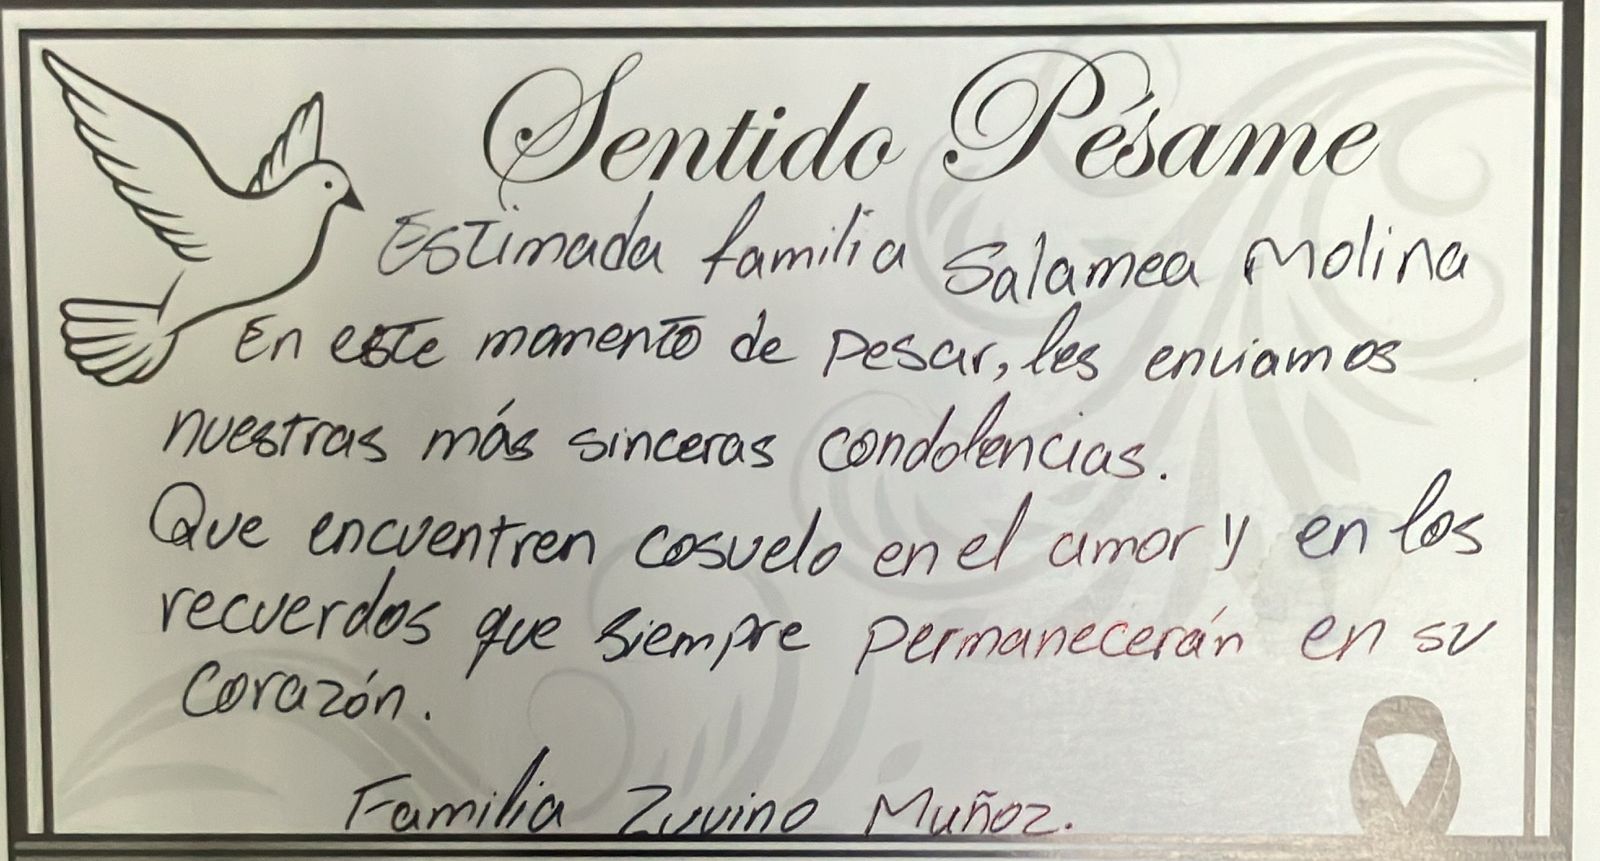 Sentido Pésame
Estimada familia Salamea Molina
En este momento de pesar, les enviamos
nuestras más sinceras condolencias.
Que encuentren cosuelo en el amor y en los
recuerdos que siempre permanecerán en su
corazón.
Familia Muñoz.